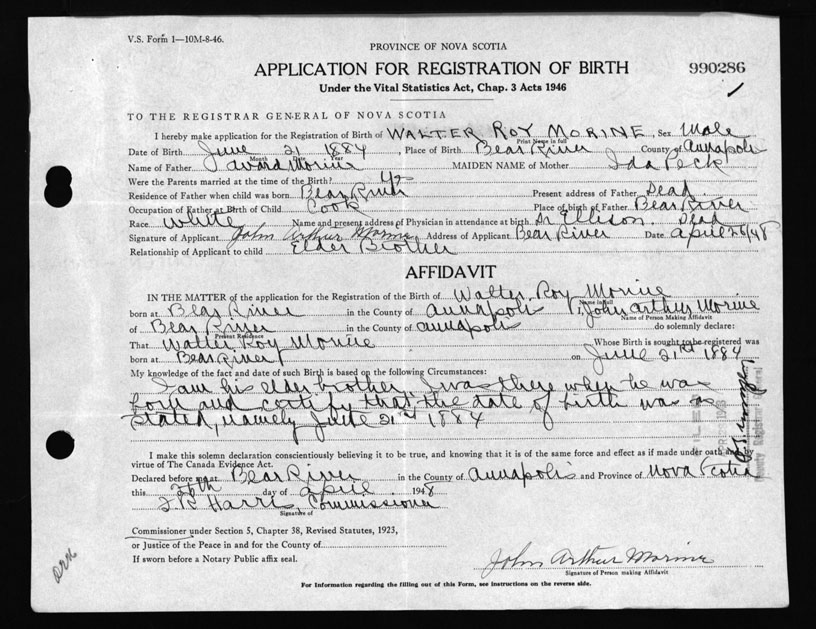 V.S. Form 1—10M-8-46.
PROVINCE OF NOVA SCOTIA
APPLICATION FOR REGISTRATION OF BIRTH 990286
Under the Vital Statistics Act, Chap. 3 Acts 1946
TO THE REGISTRAR GENERAL OF NOVA SCOTIA
I hereby make application for the Registration of Birth of WALTER ROY MORINE Sex Male
Print Name in full
Date of Birth June 21 1884 Place of Birth Bear River County of Annapolis
Month Day Year
Name of Father Avard Morine MAIDEN NAME of Mother Ida Peck
Were the Parents married at the time of the Birth? Yes
Residence of Father when child was born Bear River Present address of Father Dead
Occupation of Father at Birth of Child Cook Place of birth of Father Bear River
Race White Name and present address of Physician in attendance at birth Dr Ellison. Dead
Signature of Applicant John Arthur Morine Address of Applicant Bear River Date April 26/48
Relationship of Applicant to child Elder Brother
AFFIDAVIT
IN THE MATTER of the application for the Registration of the Birth of Walter Roy Morine
Name in full
born at Bear River in the County of Annapolis I, John Arthur Morine
Name of Person Making Affidavit
of Bear River in the County of Annapolis do solemnly declare:
Present Residence
That Walter Roy Morine Whose Birth is sought to be registered was
born at Bear River on June 21st 1884
My knowledge of the fact and date of such Birth is based on the following Circumstances:
I am his elder brother, I was there when he was
born and certify that the date of birth was as
stated, namely June 21st 1884
I make this solemn declaration conscientiously believing it to be true, and knowing that it is of the same force and effect as if made under oath and by
virtue of The Canada Evidence Act.
Declared before me at Bear River in the County of Annapolis and Province of Nova Scotia
this day of April 1948
Harris, Commissioner
Signature of
Commissioner under Section 5, Chapter 38, Revised Statutes, 1923,
or Justice of the Peace in and for the County of
If sworn before a Notary Public affix seal.
John Arthur Morine
Signature of Person making Affidavit
For Information regarding the filling out of this Form, see instructions on the reverse side.